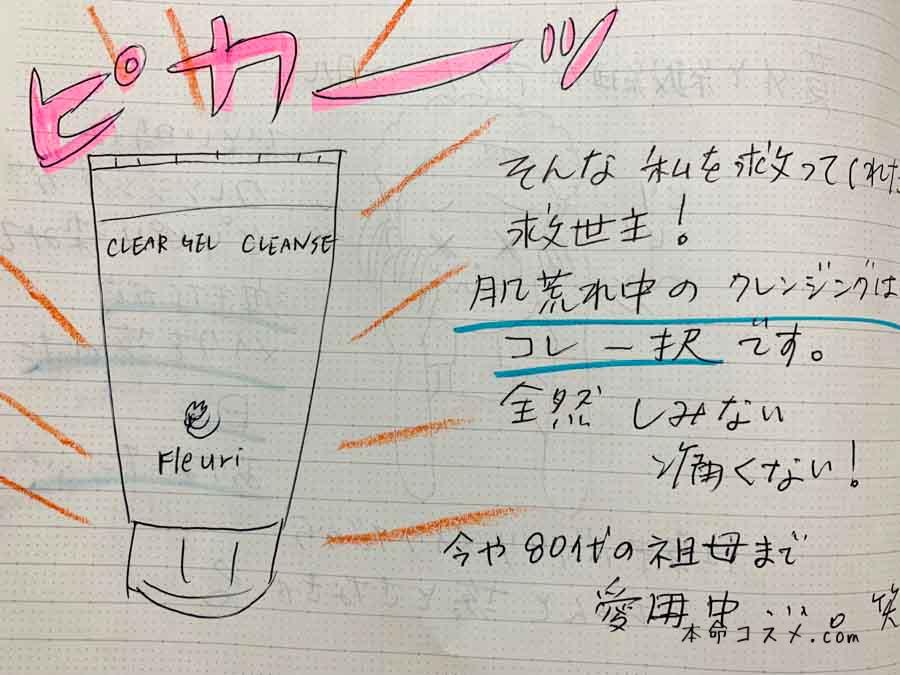 ピカーッ
CLEAR GEL CLEANSE
Fleuri
そんな 私を救ってくれた
救世主！
肌荒れ中の クレンジングは
コレ一択 です。
全然 しみない
痛くない！
今や 80代の 祖母まで
愛用中
笑
本命コスメ.com